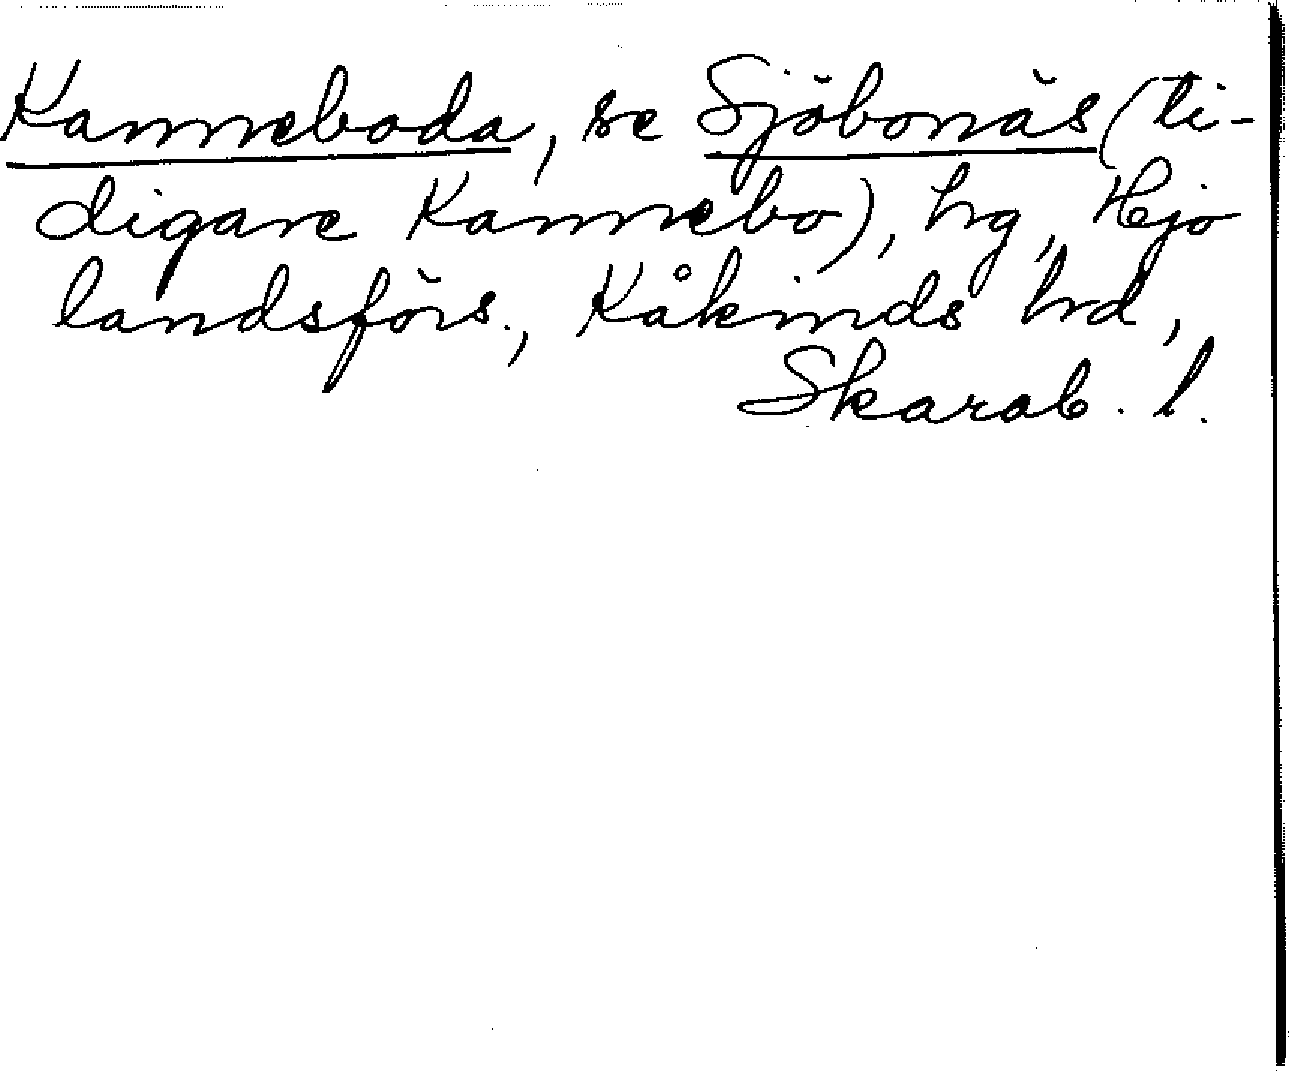 Kanneboda, se Sjöbonäs (ti-
digare Kannebo), hg, Hjo
landsförs., Kåkinds hd,
Skarab. l.